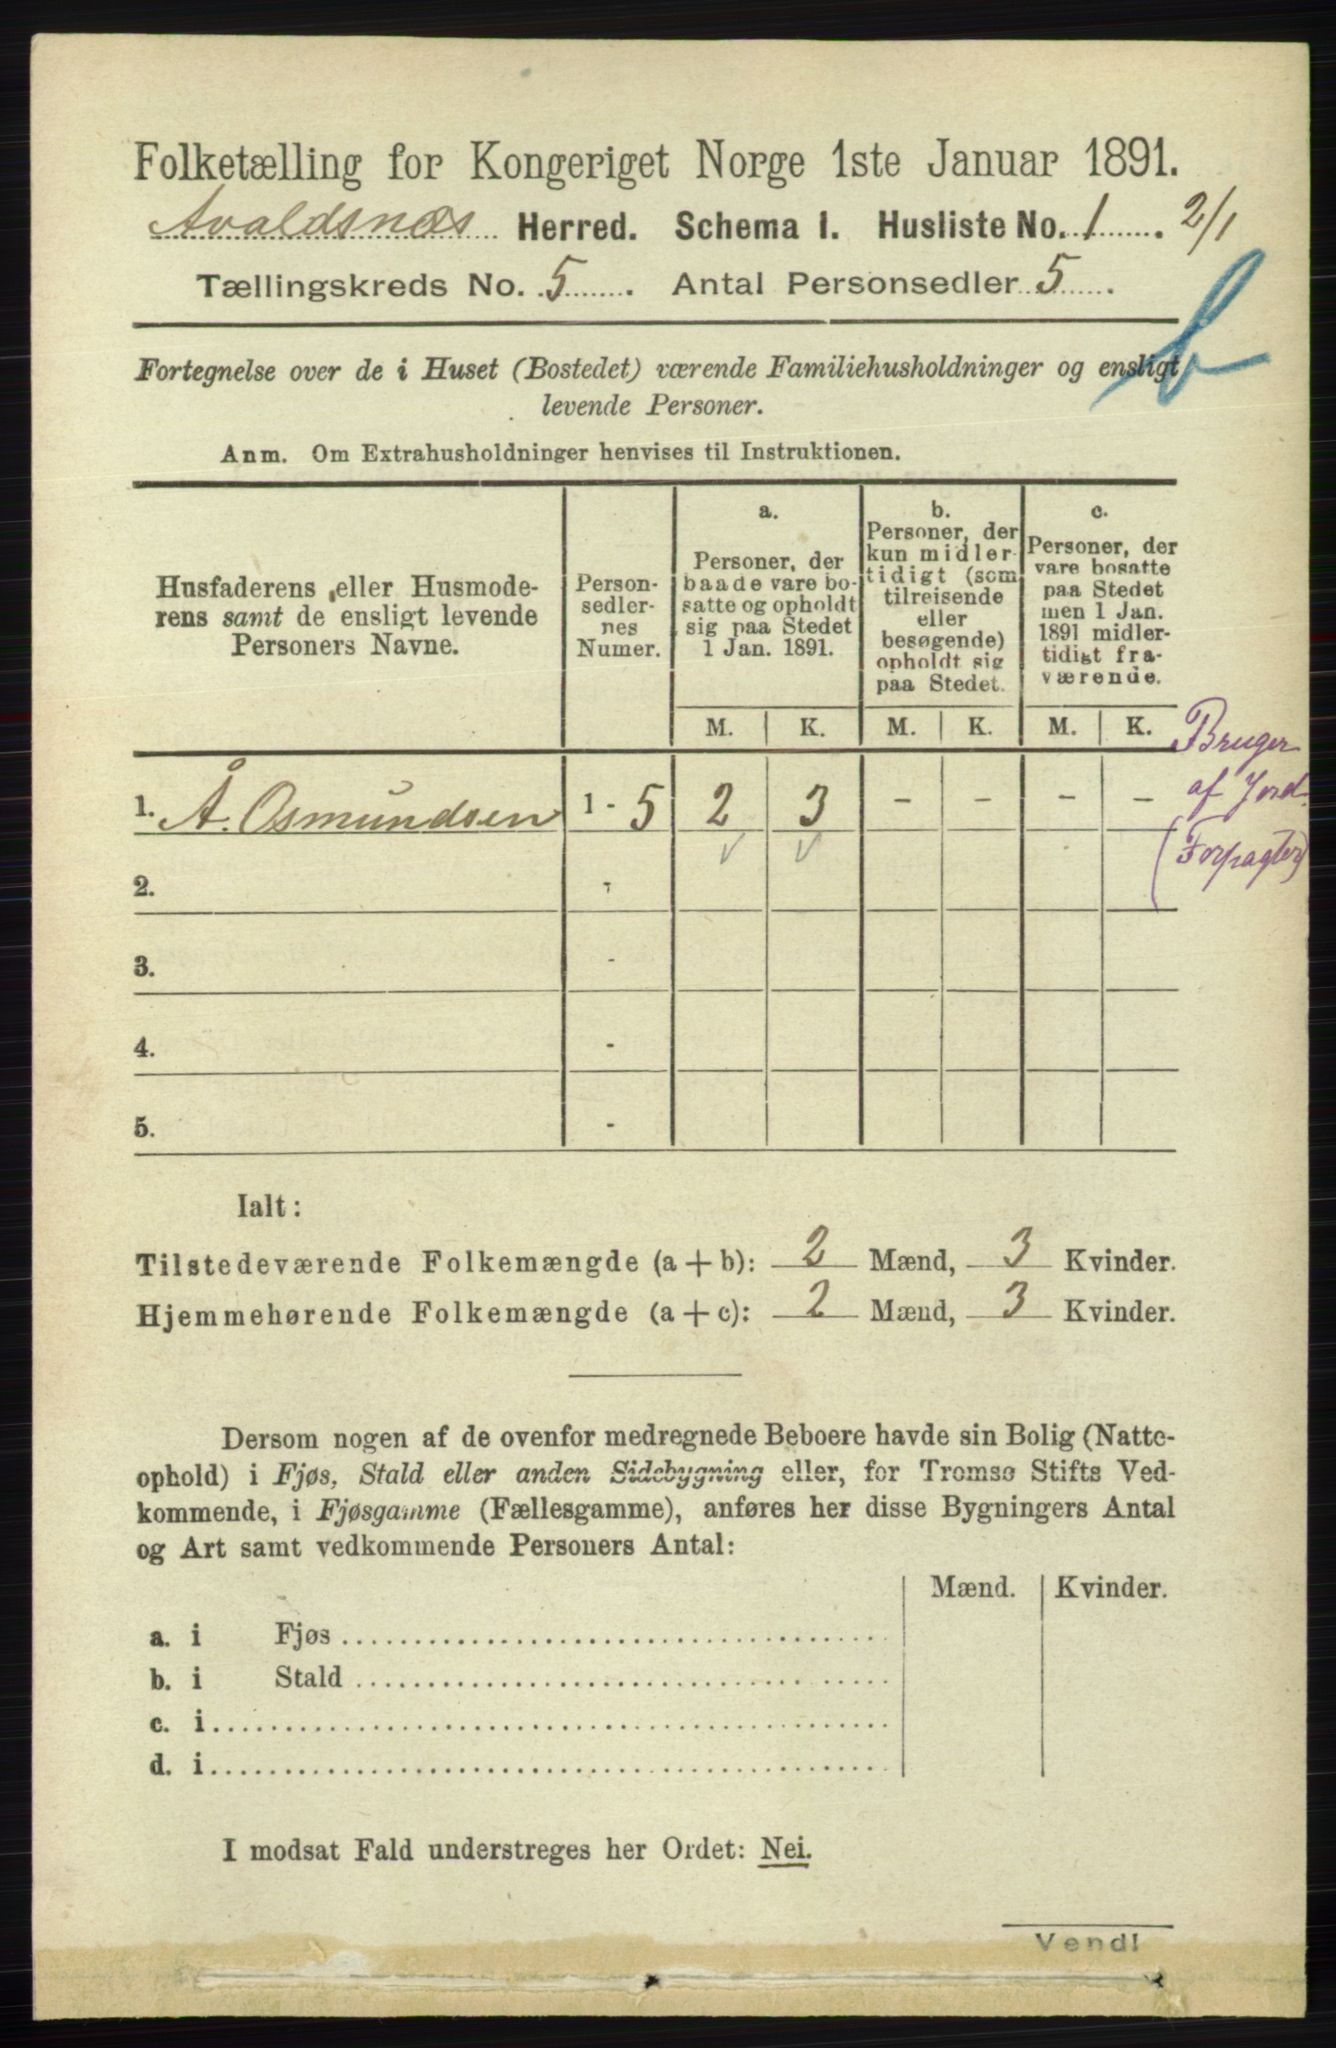 Folketælling for Kongeriget Norge 1ste Januar 1891.
Avaldsnæs Herred. Schema I. Husliste No. 1 . 2/1
Tællingskreds No. 5 . Antal Personsedler 5 .
b
Fortegnelse over de i Huset (Bostedet) værende Familiehusholdninger og ensligt
levende Personer.
Anm. Om Extrahusholdninger henvises til Instruktionen.
Husfaderens eller Husmode-
rens samt de ensligt levende
Personers Navne.
Person-
sedler-
nes
Numer.
a.
Personer, der
baade vare bo-
satte og opholdt
sig paa Stedet
1 Jan. 1891.
b.
Personer, der
kun midler-
tidigt (som
tilreisende
eller
besøgende)
opholdt sig
paa Stedet.
c.
Personer, der
vare bosatte
paa Stedet
men 1 Jan.
1891 midler-
tidigt fra-
værende.
M. K. M. K. M. K.
Bruger
af Jord.
(Forpagter)
1. Å. Osmundsen 1 - 5 2 3 - - - -
2. -
3. -
4. -
5. -
Ialt:
Tilstedeværende Folkemængde (a + b): 2 Mænd, 3 Kvinder.
Hjemmehørende Folkemængde (a + c): 2 Mænd, 3 Kvinder.
Dersom nogen af de ovenfor medregnede Beboere havde sin Bolig (Natte-
ophold) i Fjøs, Stald eller anden Sidebygning eller, for Tromsø Stifts Ved-
kommende, i Fjøsgamme (Fællesgamme), anføres her disse Bygningers Antal
og Art samt vedkommende Personers Antal:
Mænd. Kvinder.
a. i Fjøs
b. i Stald
c. i
d. i
I modsat Fald understreges her Ordet: Nei.
Vend!